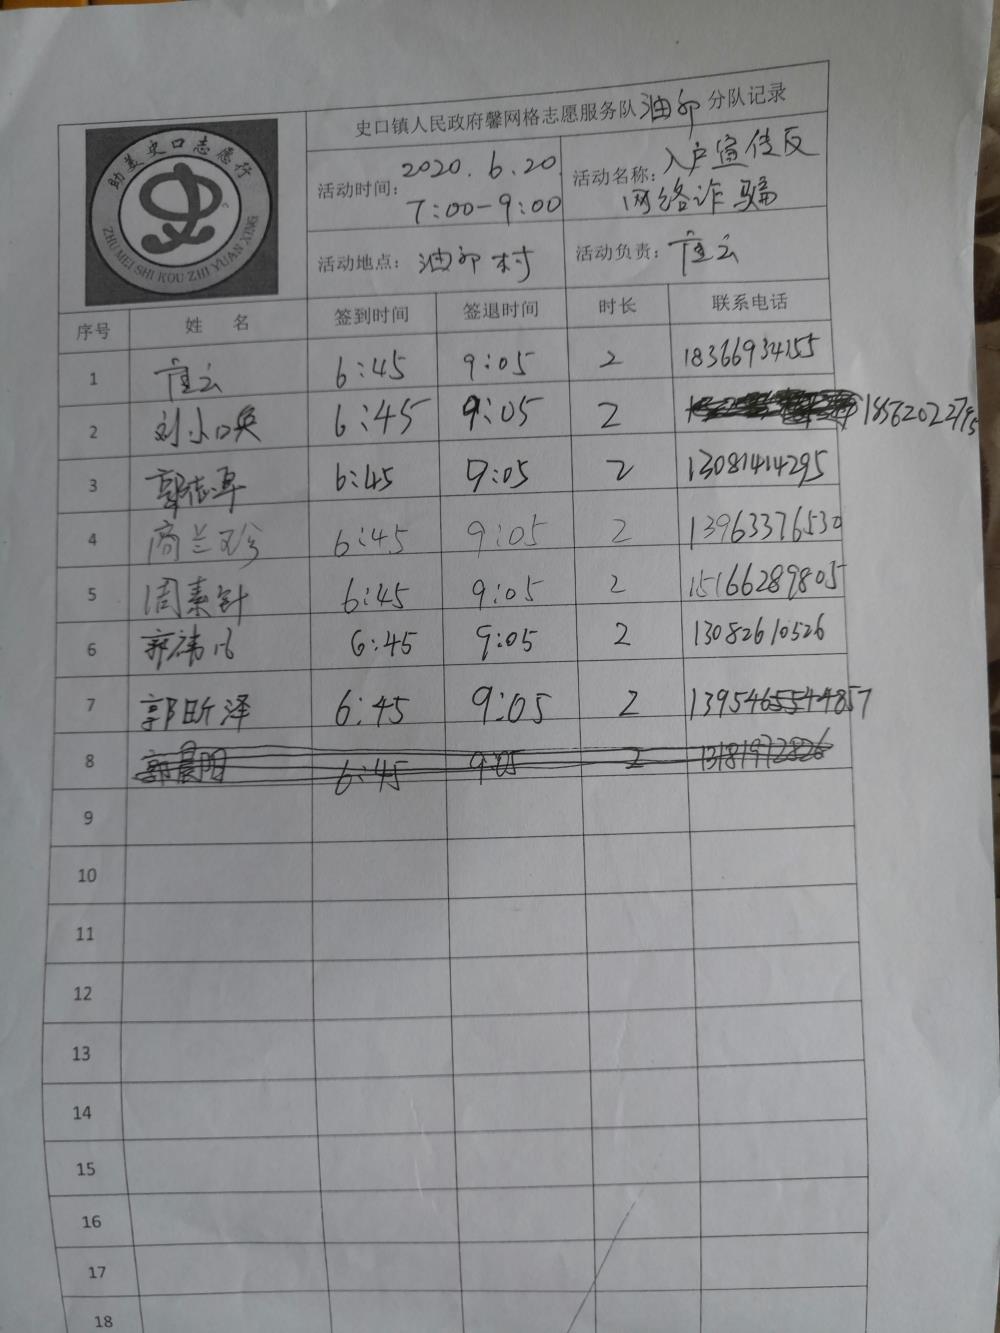 史口镇人民政府馨网格志愿服务队油郭分队记录
助美史口志愿行
ZHU MEI SHI KOU ZHI YUAN XING
活动时间：2020.6.20
7:00-9:00
活动名称：入户宣传反
网络诈骗
活动地点：油郭村
活动负责：崔云
序号 姓名 签到时间 签退时间 时长 联系电话
1 崔云 6:45 9:05 2 18366934155
2 刘小 6:45 9:05 2 18562022795
3 郭 6:45 9:05 2 13081414295
4 商兰珍 6:45 9:05 2 13963376530
5 周素针 6:45 9:05 2 15166289805
6 6:45 9:05 2 13082610526
7 郭昕泽 6:45 9:05 2
8 郭晨阳 6:45 9:05 2 13181972826
9
10
11
12
13
14
15
16
17
18